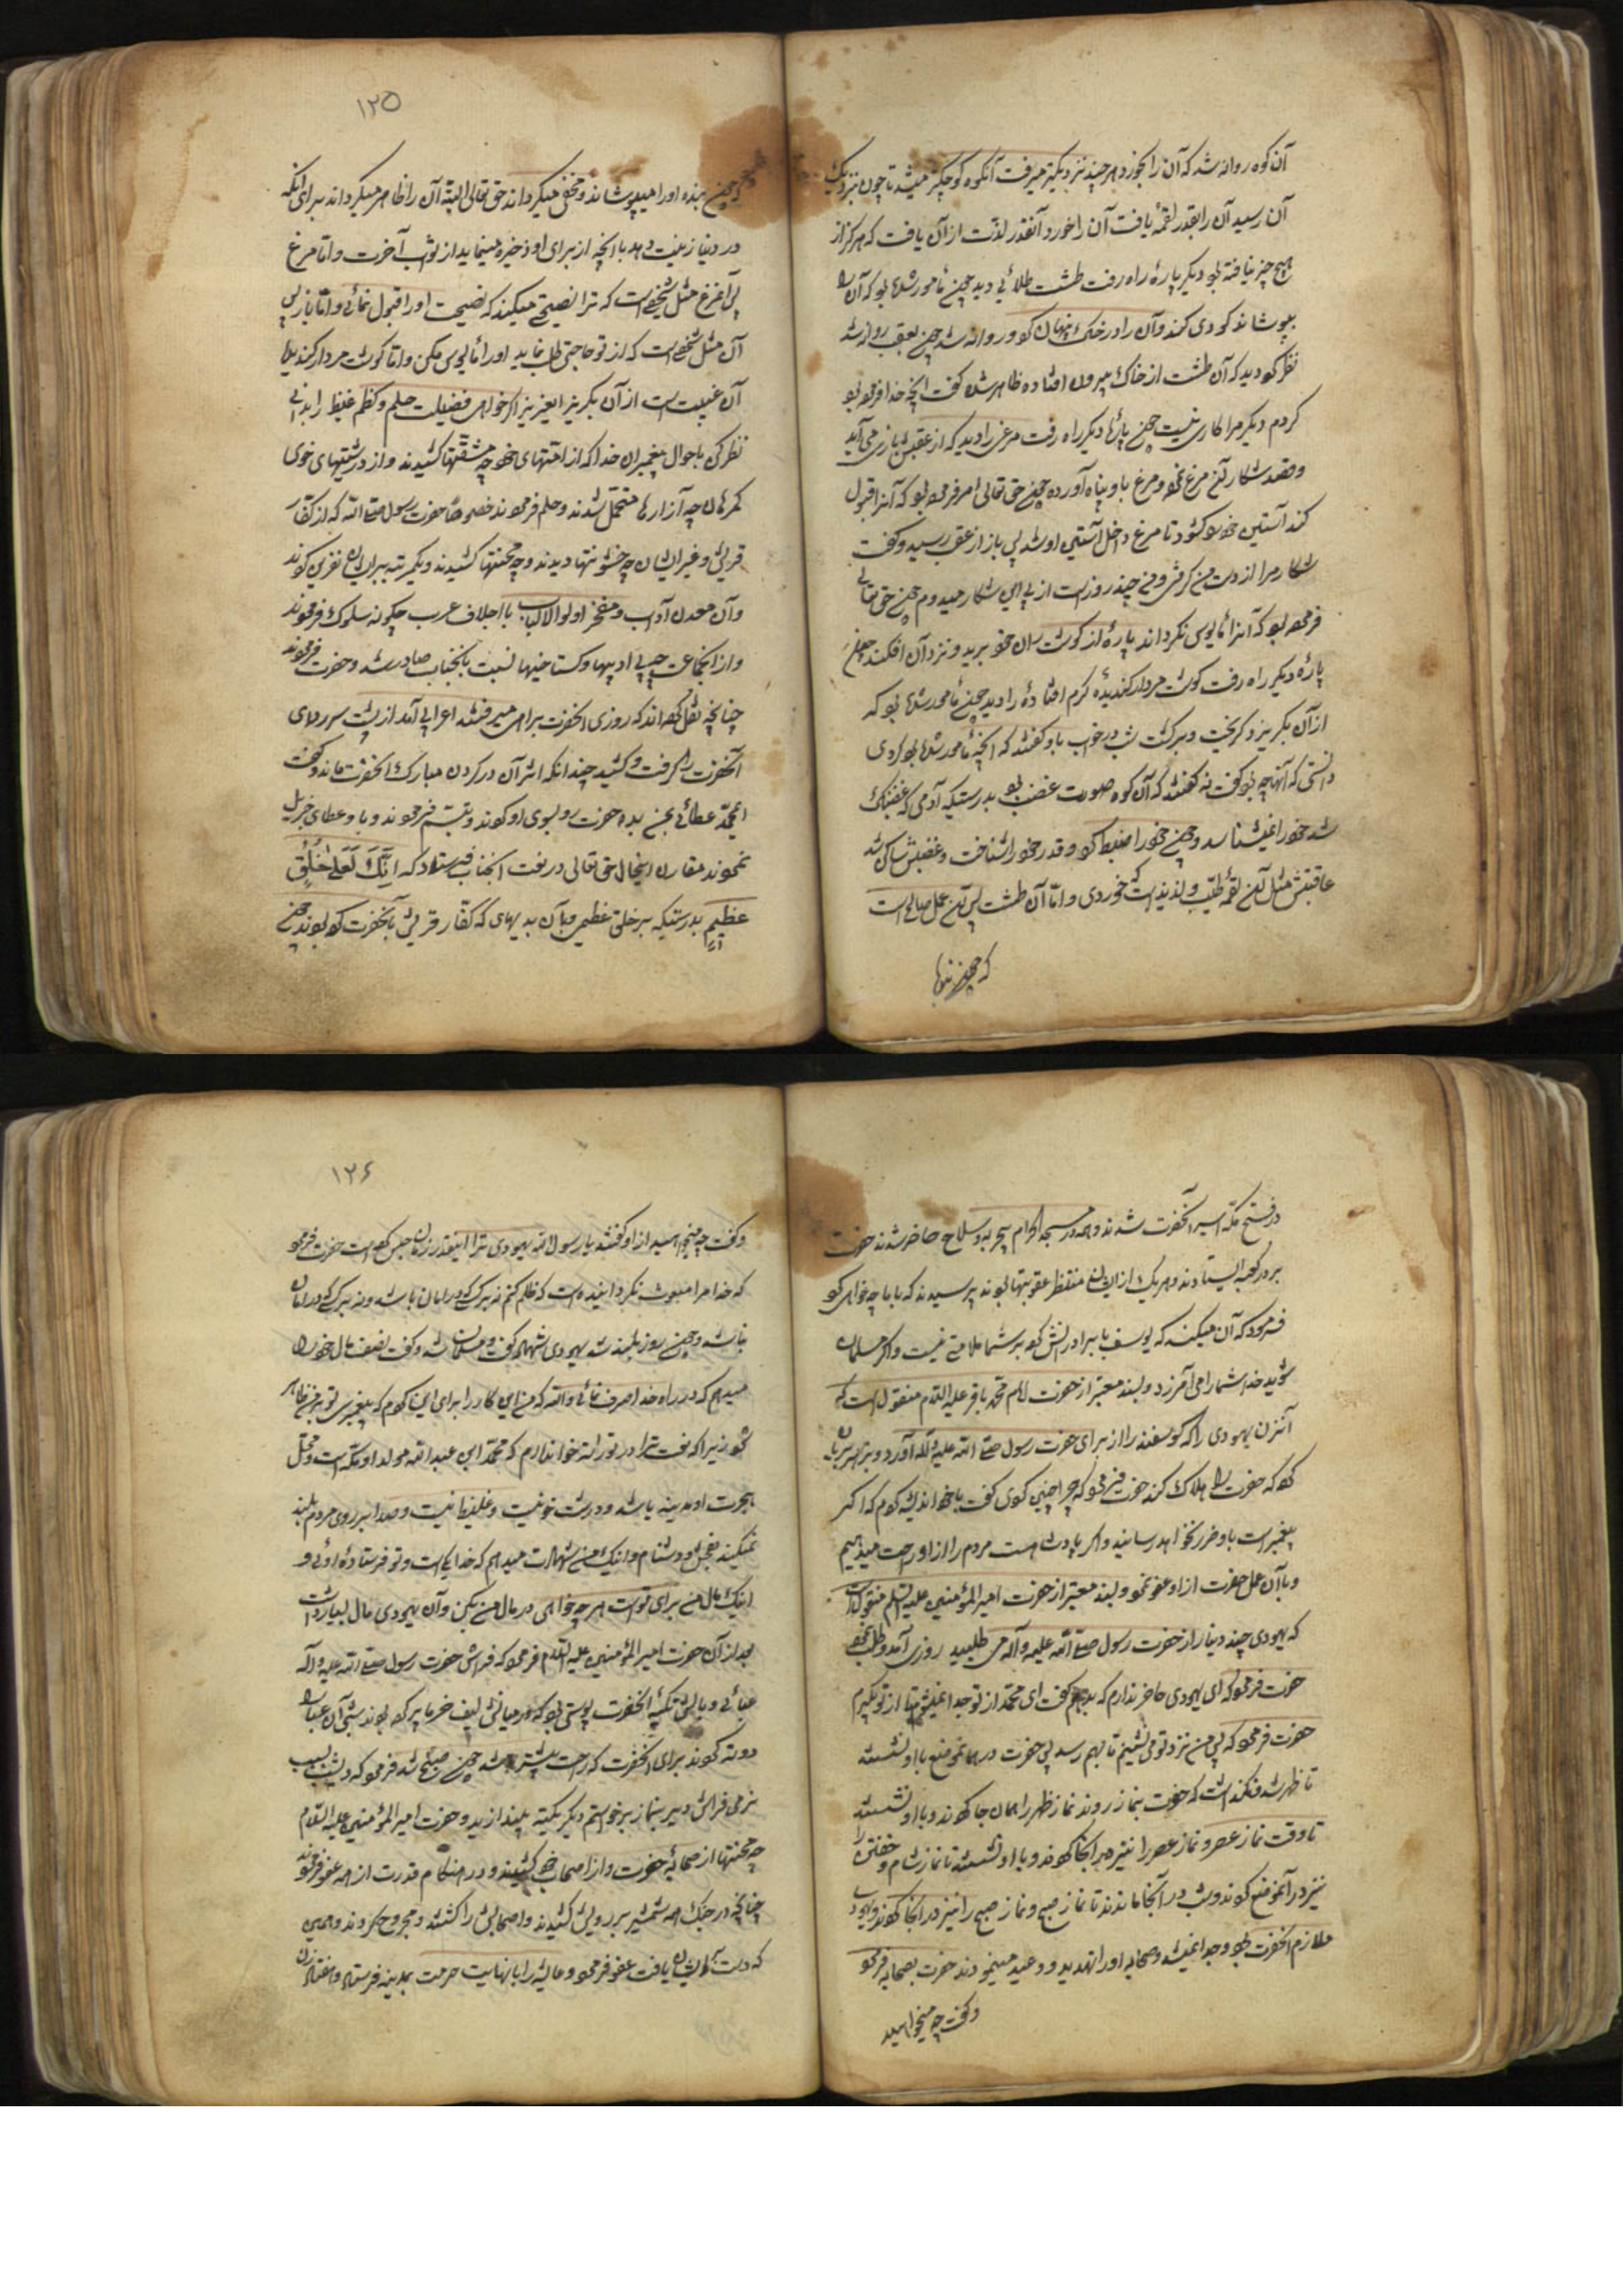 آن کوه روانه شد که آن را بخورد هر چند نزدیکتر میرفت آنکوه کوچکتر میشد تا چون نزدیک
آن رسید آن را بقدر لقمهٔ یافت آن را خورد آنقدر لذت از آن یافت که هرکز از
هیچ چیز نیافته بود دیکر پارهٔ راه رفت طشت طلائی دید چون مأمور شده بود که آن را
بپوشاند کودی کند و آن را در خاک پنهان کرد و روانه شد چون بعقب روانه شد
نظر کرد دید که آن طشت از خاک بیرون افتاده ظاهر شده کفت آنچه خدا فرموده بود
کردم دیکر مرا کاری نیست چون پارهٔ دیکر راه رفت مرغی را دید که از عقبش بازی می آید
و قصد شکار آن مرغ نمود و مرغ باو پناه آورده چون حق تعالی امر فرموده بود که آنرا قبول
کند آستین خود کشود تا مرغ داخل آستین او شد پس باز از عقب رسید و کفت
شکار مرا از دست من کرفتی و من چند روز است از پی این شکار میدوم چون حق تعالی
فرموده بود که آنرا مأیوس نکرداند پارهٔ از کوشت ران خود برید و نزد آن افکند چون
پارهٔ دیکر راه رفت کوشت مردار کندیدهٔ کرم افتادهٔ را دید چون مأمور شده بود که
از آن بکریزد کریخت و برکشت شب در خواب باو کفتند که آنچه مأمور شده بودی کردی
دانستی که آنها چه بود کفت نه کفتند که آن کوه صورت غضب بود بدرستیکه آدمی که غضبناک
شد خود را نمیشناسد و چون خود را ضبط کرد و قدر خود را شناخت و غضبش ساکن شد
عاقبتش مثل آن لقمهٔ طیب و لذیذ است که خوردی و امّا آن طشت پس آن عمل صالح است
که چون بنده
۱۲۵
که چون بنده او را میپوشاند و مخفی میکرداند حق تعالی البته آن را ظاهر میکرداند برای آنکه
در دنیا زینت دهد با آنچه از برای او ذخیره مینماید از ثواب آخرت و امّا مرغ
پس آنمرغ مثل شخصی است که ترا نصیحتی میکند که نصیحت او را قبول نمائی و امّا باز پس
آن مثل شخصی است که از تو حاجتی طلب نماید او را مأیوس مکن و امّا کوشت مردار کندیده
آن غیبت است از آن بکریز ای عزیز اکر خواهی فضیلت حلم و کظم غیظ را بدانی
نظر کن باحوال پیغمبران خدا که از امتهای خود چه مشقتها کشیدند و از درشتیهای خوی
کمرهان چه آزارها متحمل شدند و حلم فرمودند خصوصاً حضرت رسول صلی الله که از کفار
قریش و غیر ایشان چه خشونتها دیدند و چه محنتها کشیدند و یکمرتبه بر ایشان نفرین نکردند
و آن معدن آداب و مفخر اولوالالباب با اجلاف عرب چکونه سلوک فرمودند
و از آنجماعت چه بی ادبیها و کستاخیها نسبت بآنجناب صادر شد و حضرت فرمودند
چنانچه نقل کرده اند که روزی آنحضرت براهی میرفتند اعرابی آمد از پشت سر ردای
آنحضرت را کرفت و کشید چندانکه اثر آن در کردن مبارک آنحضرت ماند و کفت
ای محمد عطائی بمن بده حضرت رو بسوی او کردند و تبسم فرمودند و باو عطای جزیل
نمودند مقارن اینحال حق تعالی در نعت آنجناب فرستاد که اِنَّکَ لَعَلی خُلُقٍ
عَظیمٍ بدرستیکه بر خلق عظیمی و بآن بدیهای که کفار قریش بآنحضرت کرده بودند چون
در فتح مکه اسیر آنحضرت شدند و همه در مسجد الحرام بی حربه و سلاح حاضر شدند حضرت
بر در کعبه ایستادند و هر یک از ایشان منتظر عقوبتها بودند پرسیدند که با ما چه خواهی کرد
فرمود که آن میکنم که یوسف با برادرانش کرد بر شما ملامتی نیست و اکر مسلمان
شوید خدا شما را می آمرزد و بسند معتبر از حضرت امام محمد باقر علیه السلام منقول است که
آن زن یهودی را که کوسفند را از برای حضرت رسول صلی الله علیه و آله آورد و بزهر بریان
کرد که حضرت را هلاک کند حضرت فرمود که چرا چنین کردی کفت با خود اندیشه کردم که اکر
پیغمبر است باو ضرر نخواهد رسانید و اکر پادشاه است مردم را از او راحت میدهیم
و با آن عمل حضرت از او عفو نمود و بسند معتبر از حضرت امیر المؤمنین علیه السلم منقول است
که یهودی چند دینار از حضرت رسول صلی الله علیه و آله می طلبید روزی آمد و طلب نمود
حضرت فرمود که ای یهودی حاضر ندارم که بدهم کفت ای محمد از تو جدا نمیشوم تا از تو بکیرم
حضرت فرمود که پس من نزد تو می نشینم تا بهم رسد پس حضرت در همانموضع با او نشستند
تا ظهر شد و نکذاشت که حضرت بنماز روند نماز ظهر را همان جا کردند و با او نشستند
تا وقت نماز عصر و نماز عصر را نیز در آنجا کردند و با او نشستند تا نماز شام و خفتن را
نیز در آنموضع کردند و شب در آنجا ماندند تا نماز صبح و نماز صبح را نیز در آنجا کردند و یهودی
ملازم آنحضرت بود و جدا نمیشد و صحابه او را تهدید و وعید مینمودند حضرت بصحابه فرمود
و کفت چه میخواهید
۱۲۶
و کفت چه میخواهید از او کفتند یا رسول الله یهودی ترا اینقدر زمان حبس کرده است حضرت فرمود
که خدا مرا مبعوث نکردانیده است که ظلم کنم نه بر کسی که در امان باشد و نه بر کسی که در امان
نباشد و چون روز بلند شد یهودی شهادت کفت و مسلمان شد و کفت نصف مال خود را
میدهم که در راه خدا صرف نمائی و الله که من این کار را برای این کردم که پیغمبری تو بر من ظاهر
شود زیرا که نعت ترا در تورات خوانده ام که محمد ابن عبدالله مولد او مکه است و محل
هجرت او مدینه باشد و درشت خو نیست و غلیظ نیست و صدا بر روی مردم بلند
نمیکند بفحش و دشنام و اینک من شهادت میدهم که خدا یکی است و تو فرستادهٔ اوئی و
اینک مال من برای تو است هر چه خواهی در مال من بکن و آن یهودی مال بسیار داشت
بعد از آن حضرت امیر المؤمنین علیه السلام فرمود که فراش حضرت رسول صلی الله علیه و آله
عبائی و بالش تکیهٔ آنحضرت پوستی بود که در میانش لیف خرما پر کرده بودند شبی آن عبا را
دوته کردند برای آنحضرت که راحت بیشتر باشد چون صبح شد فرمود که دیشب بسبب
نرمی فراش دیر بنماز برخواستم دیکر یکته بیندازید و حضرت امیر المؤمنین علیه السلام
چه محنتها از صحابهٔ حضرت و از اصحاب خود کشیدند و در هنکام قدرت از همه عفو فرمودند
چنانچه در جنک همه شمشیر بر رویش کشیدند و اصحابش را کشتند و مجروح کردند و همین
که دست بر ایشان یافت عفو فرمود و عایشه را با نهایت حرمت بمدینه فرستاد و هفتاد زن